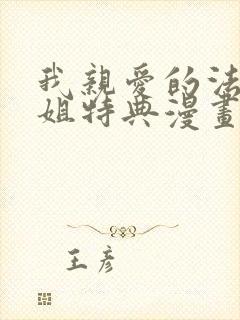 我親愛的法
姐特典漫畫
王彥